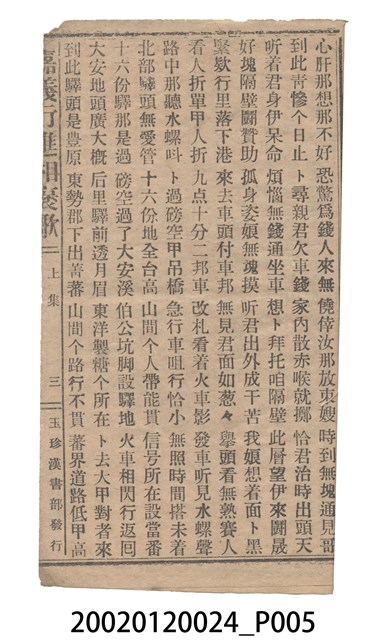 心肝那想那不好 恐驚為錢人來無 僥倖汝那放東嫂 時到無塊通見哥
到此青慘个日止 卜尋親君欠車錢 家內散赤喉就擲 恰君治時出頭天
听着君身伊呆命 煩惱無錢通坐車 想卜拜托咱隔壁 此層望伊來鬪晟
好塊隔壁鬪贊助 孤身姿娘無塊摸 听君出外成干苦 我娘想着面卜黑
緊欵行里落下港 來去車頭付車邦 無見君面如葱々 舉頭看無熟賽人
看人折單甲人折 九点十分二邦車 改札看着火車影 發車听見水螺聲
路中那聽水螺呌 卜過磅空甲吊橋 急行車咀行恰小 無照時間搭未着
北部驛頭無愛管 十六份地全台高 山間个人帶能貫 信号所在設當番
十六份驛那是過 磅空過了大安溪 伯公坑脚設驛地 火車相閃行返囘
大安地頭廣大概 后里驛前透月眉 東洋製糖个所在 卜去大甲對者來
到此驛頭是豊原 東勢郡下出菁蕃 山間个路行不貫 蕃界道路低甲高
嘉義行進相褒歌 上集 三 玉珍漢書部發行
20020120024_P005